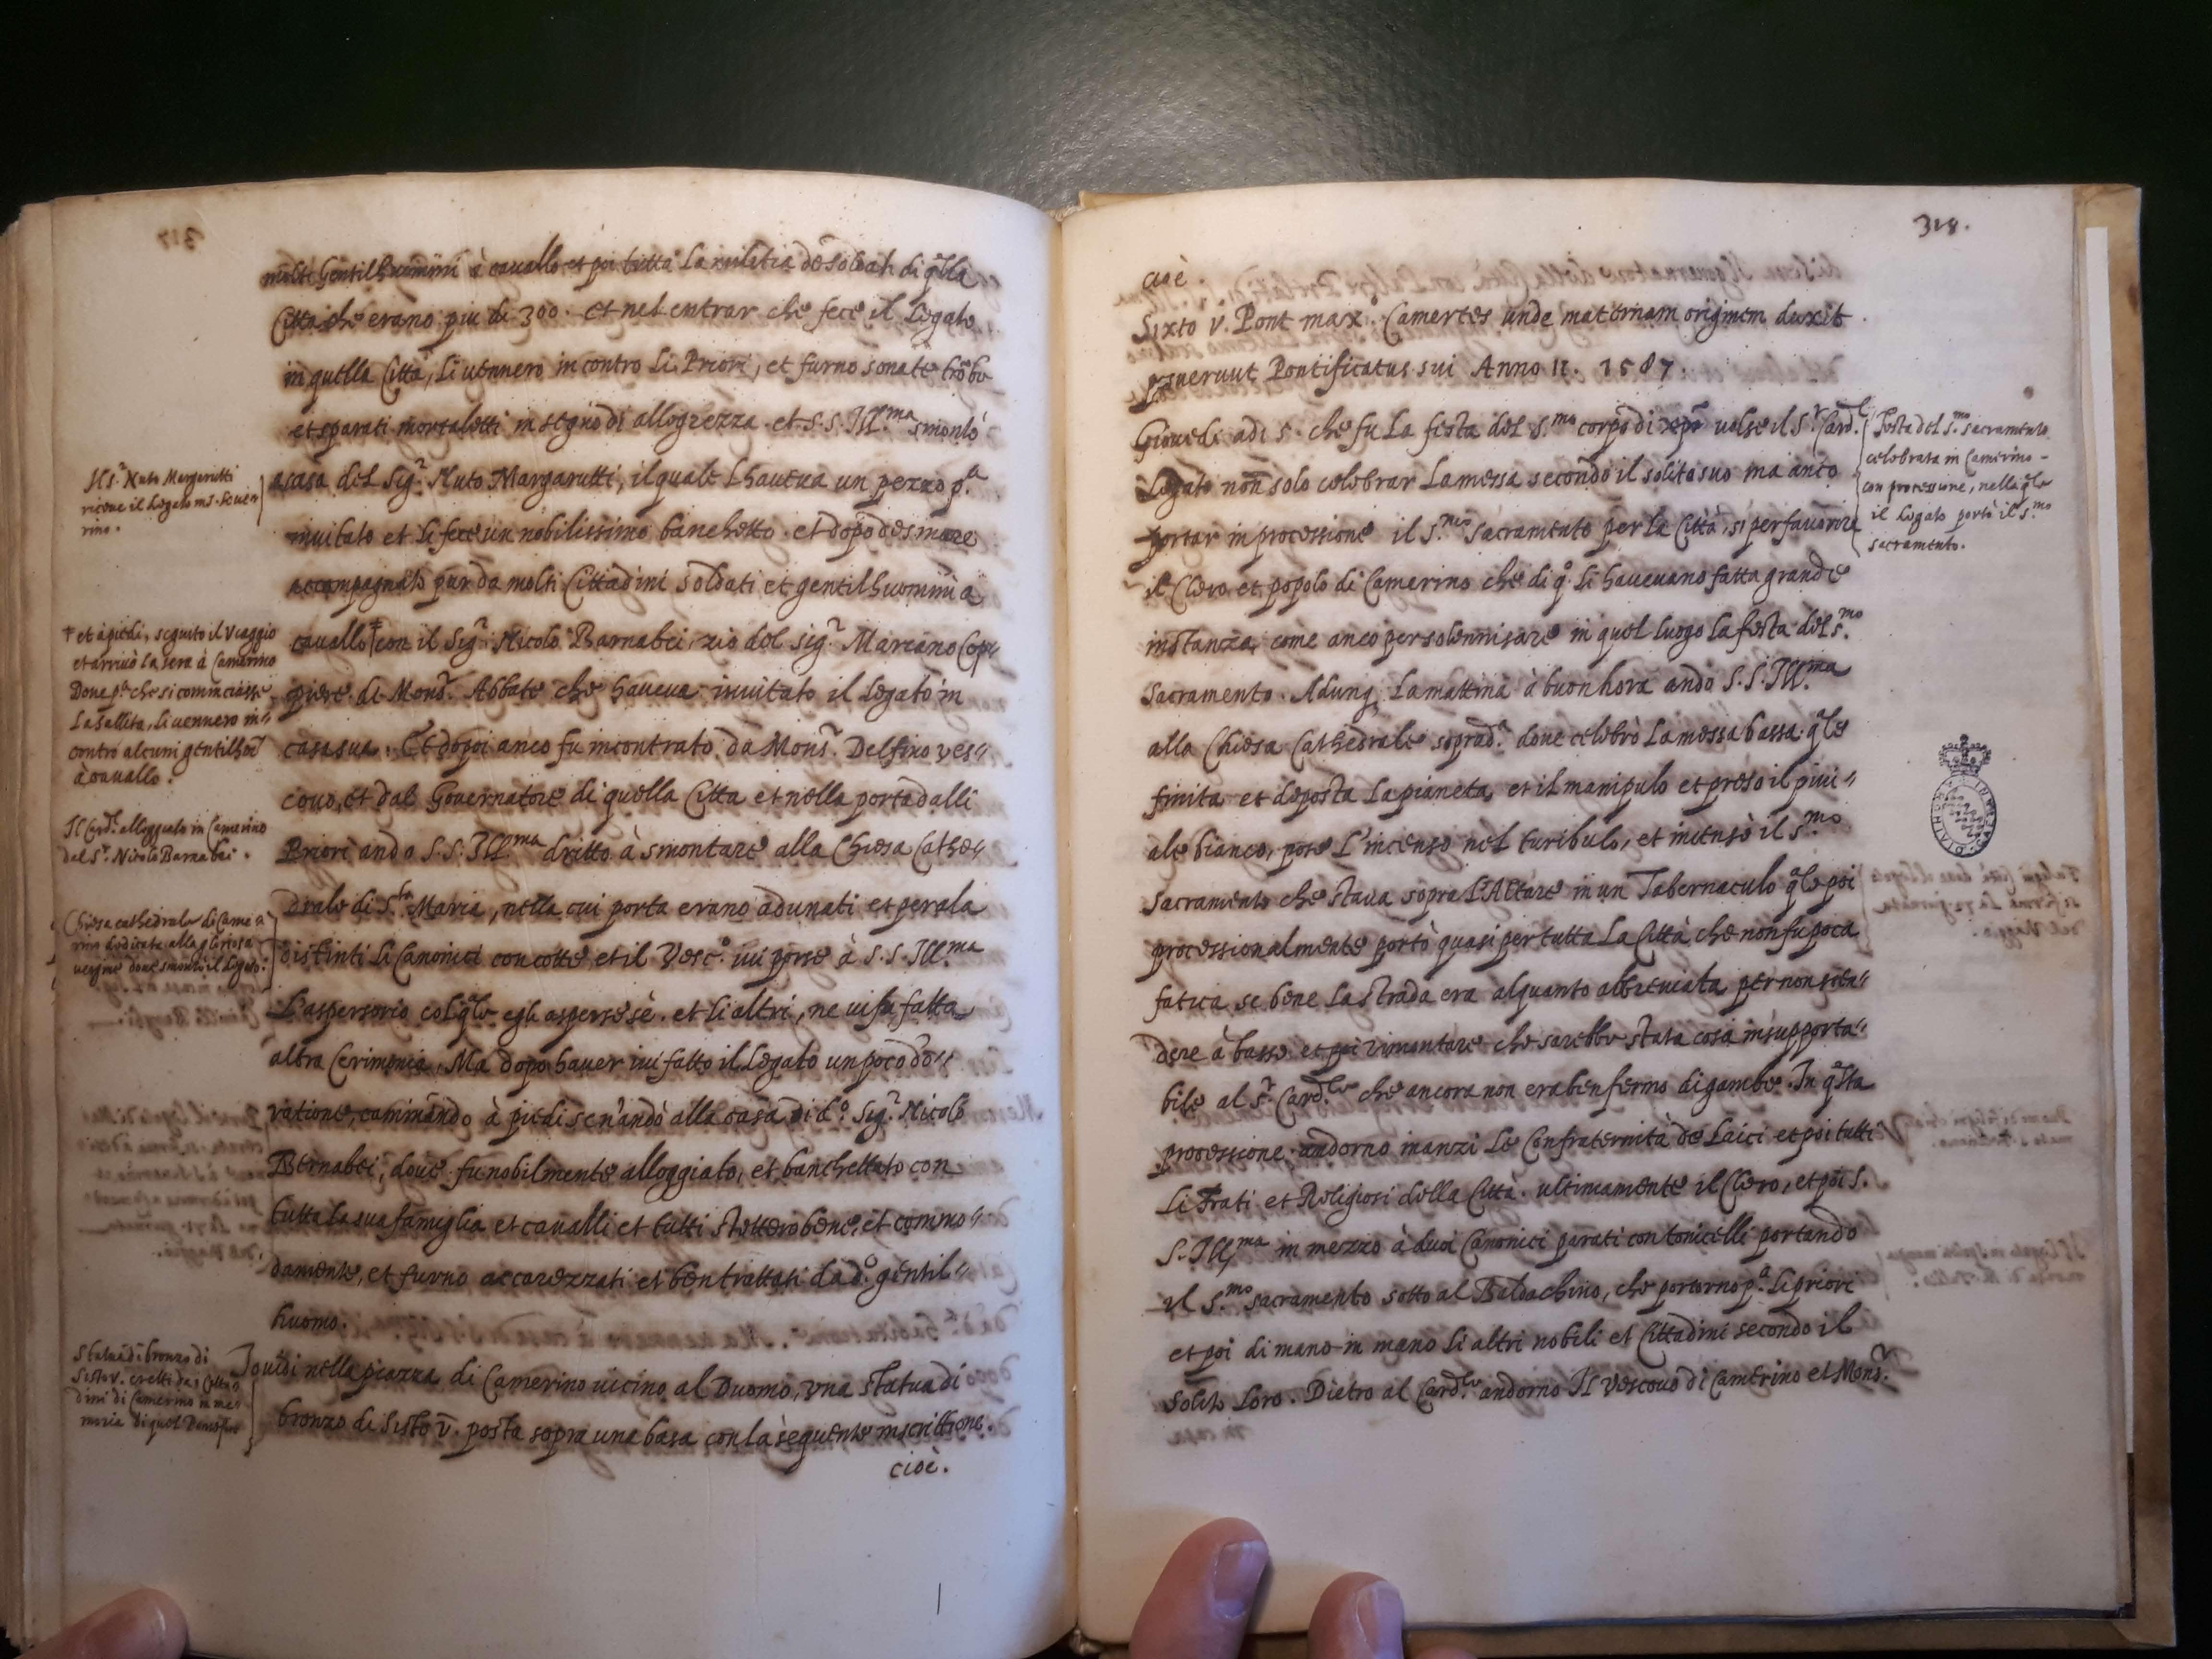 molti Gentilhuomini à cauallo et poi tutta La militia de soldati di q̃lla
Citta che erano piu di 300. et nel entrar che fece il Legato
in quella Città, li uennero in contro li Priori, et furno sonate trõbe
et sparati mortaletti in segno di allegrezza. et S. S. Ill.ma smontò
a casa del Sig.r Muto Margarutti, il quale l'haueua un pezzo p.a
inuitato et li fece un nobilissimo banchetto. et dopo desinare
accompagnato pur da molti Cittadini soldati et gentilhuomini à
cauallo † con il Sig.r Nicolo Barnabei, zio del Sig.r Marcano Cop
piere di Mons.r Abbate che haueua inuitato il Legato in
casa sua. Et dopoi anco fu incontrato da Mons.r Delfino ves"
couo, et dal Gouernatore di quella Citta et nella porta dalli
Priori andò S. S. Ill.ma dritto à smontare alla Chiesa Cathe"
drale di S.ta Maria, nella cui porta erano adunati et per ala
distinti li Canonici con cotte, et il Vesc.o iui porse à S. S. Ill.ma
L'aspersorio col q̃le egli asperse sè. et li altri, ne ui fu fatta
altra Cerimonia, Ma dopo hauer iui fatto il Legato un poco d'o"
ratione, caminando à piedi se n'andò alla casa di d.o Sig.r Nicolò
Bernabei, doue fu nobilmente alloggiato, et banchettato con
tutta la sua famiglia et caualli et tutti stettero bene, et commo"
damente, et furno accarezzati et ben trattati da d.o gentil"
huomo.
Io uidi nella piazza di Camerino uicino al Duomo, vna statua di
bronzo di Sisto V. posta sopra una basa con la seguente inscrittione.
cioè.
Il S.r Muto Margarutti
riceue il Legato in S. Seueri
rino.
† et à piedi, seguito il Viaggio
et arriuò la sera à Camerino
Doue p.a che si cominciasse
La sallita, li uennero in"
contro alcuni gentilhõi
à cauallo.
Il Card.l alloggiato in Camerino
dal S.r Nicolò Barnabei.
Chiesa cathedrale di Came
rino dedicata alla gloriosa
uergine doue smontò il Legato.
Statua di bronzo di
Sisto V. eretta da Citta"
dini di Camerino in me"
moria di quel Pontefice
318.
cioè
Sixto V. Pont max. Camertes unde maternam originem duxit
posuerunt Pontificatus sui Anno II. 1587.
Giouedi adi 5. che fu La festa del S.mo corpo di xp̃o uolse il S.r Card.l
Legato non solo celebrar La messa secondo il solito suo ma anco
portar in processione il S.mo Sacramento per la Città, si per fauorire
il Clero et popolo di Camerino che di q.o li haueuano fatta grande
instanza, come anco per solennisare in quel luogo la festa del S.mo
Sacramento. Adunq̃ La mattina à buon hora andò S. S. Ill.ma
alla Chiesa Cathedrale soprad.a doue celebrò La messa bassa. q̃le
finita et deposta La pianeta, et il manipulo et preso il piui"
ale bianco, pose L'incenso nel turibulo, et incensò il S.mo
Sacramento che staua sopra L'Altare in un Tabernaculo q̃le poi
processionalmente portò quasi per tutta La Città, che non fu poca
fatica se bene La strada era alquanto abbreuiata, per non scen"
dere à basso et poi rimontare che sarebbe stata cosa insupporta"
bile al S.r Card.le che ancora non era ben fermo di gambe. In q̃sta
processione andorno inanzi Le Confraternità de Laici et poi tutti
Li Frati et Religiosi della Città. ultimamente il Clero, et poi S.
S. Ill.ma in mezzo à duoi Canonici parati con tonicelli portando
il S.mo sacramento sotto al Baldachino, che portorno p.a li priori
et poi di mano in mano li altri nobili et Cittadini secondo il
solito Loro. Dietro al Card.le andorno Il Vescouo di Camerino et Mons.r
Festa del S.mo Sacramento
celebrata in Camerino
con processione, nella q̃le
il Legato portò il S.mo
sacramento.